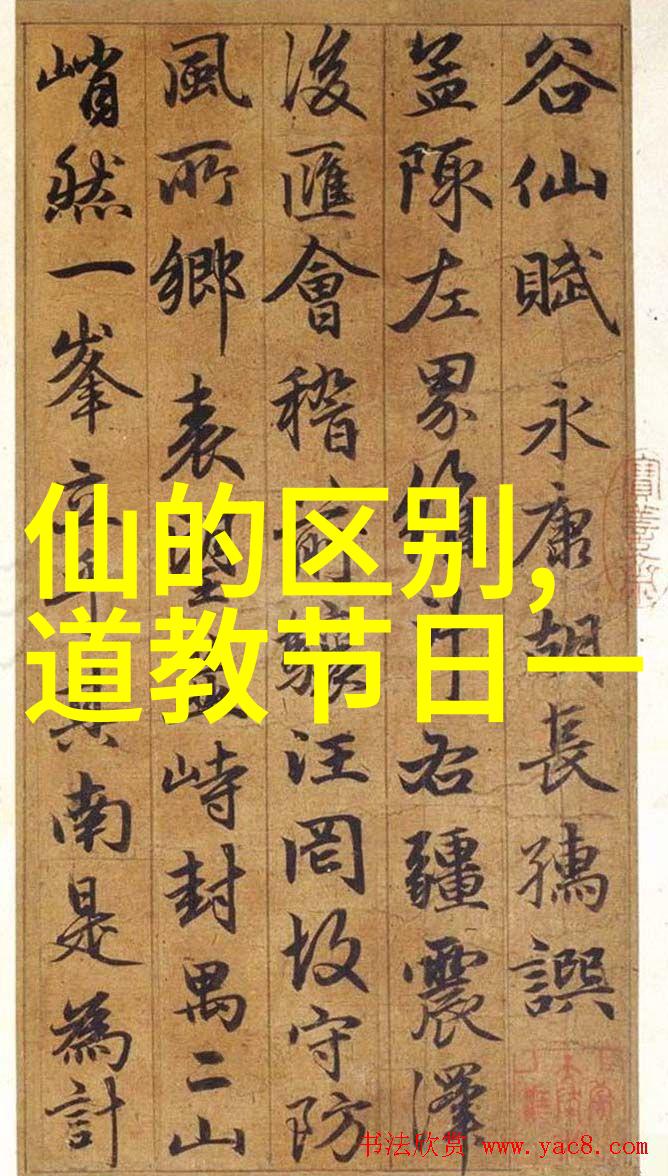 谷仙賦 永康胡長孺譔
左界 右疆震澤
浚匯會稽前 汪罔故守防
風所鄉表望 峙封禺二山
峭然一峯立 其南是為計
仙的区别,
道教节日一
书法欣赏 www.yac8.com